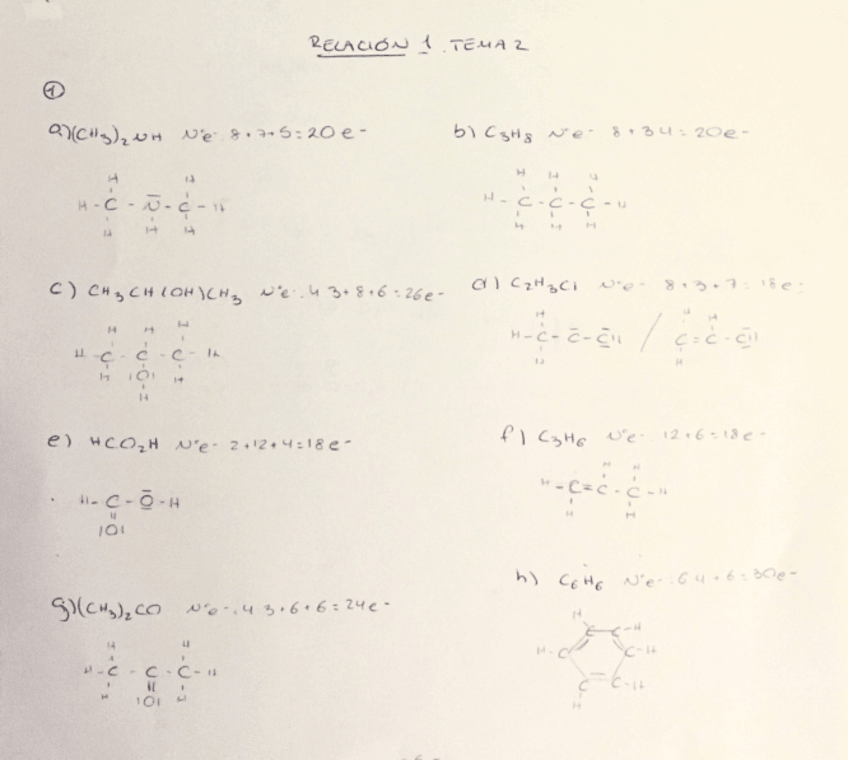 RELACIÓN 1. TEMA 2
①
a) (CH3)2 NH Nºe- 8+7+5=20e-
H H
H - C - N - C - H
H H H
b) C3H8 Nºe- 8+3·4=20e-
H H H
H - C - C - C - H
H H H
c) CH3CH(OH)CH3 Nºe- 4·3+8+6=26e-
H H H
H - C - C - C - H
H |O| H
H
d) C2H3Cl Nºe- 8+3+7=18e-
H H H
H - C - C - Cl / C = C - Cl
H H
e) HCO2H Nºe- 2+12+4=18e-
H - C - O - H
||
|O|
f) C3H6 Nºe- 12+6=18e-
H H
H - C = C - C - H
H H
g) (CH3)2CO Nºe- 4·3+6+6=24e-
H H
H - C - C - C - H
H || H
|O|
h) C6H6 Nºe- 6·4+6=30e-
H
C - C - H
H - C C - H
C = C - H
H